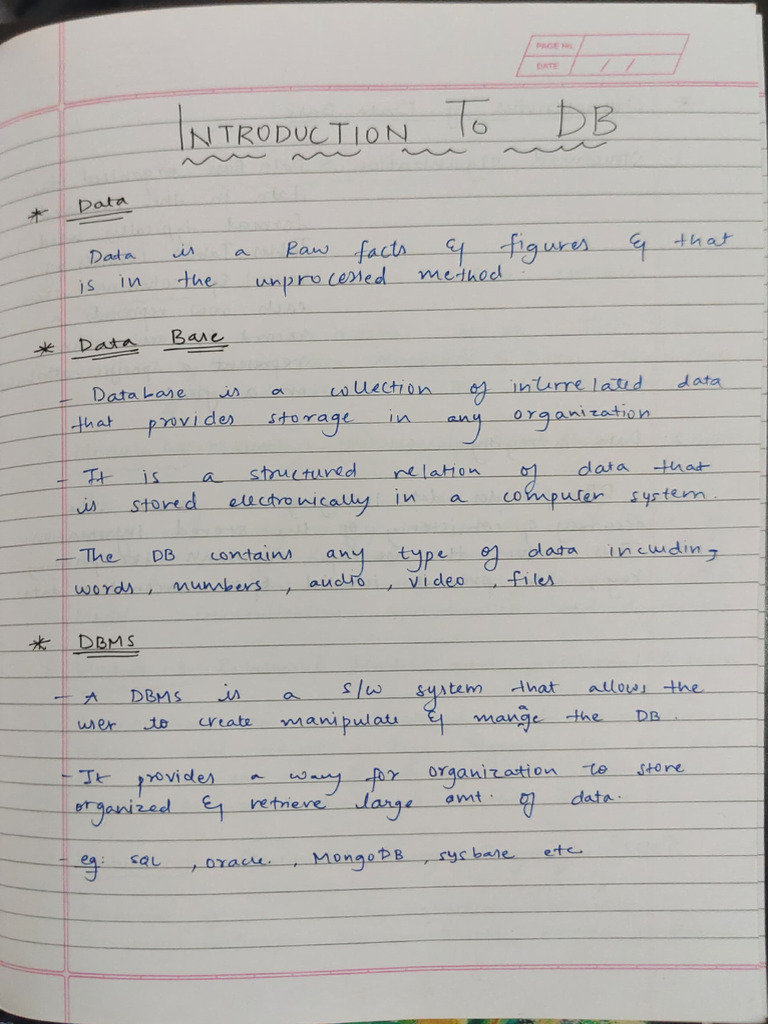 PAGE No.
DATE / /
INTRODUCTION TO DB
* Data
Data is a Raw facts & figures & that
is in the unprocessed method.
* Data Base
- Database is a collection of interrelated data
that provides storage in any organization
- It is a structured relation of data that
is stored electronically in a computer system.
- The DB contains any type of data including
words, numbers, audio, video, files
* DBMS
- A DBMS is a s/w system that allows the
user to create manipulate & manage the DB.
- It provides a way for organization to store
organized & retrieve large amt. of data.
- eg: SQL, oracle, MongoDB, sysbase etc